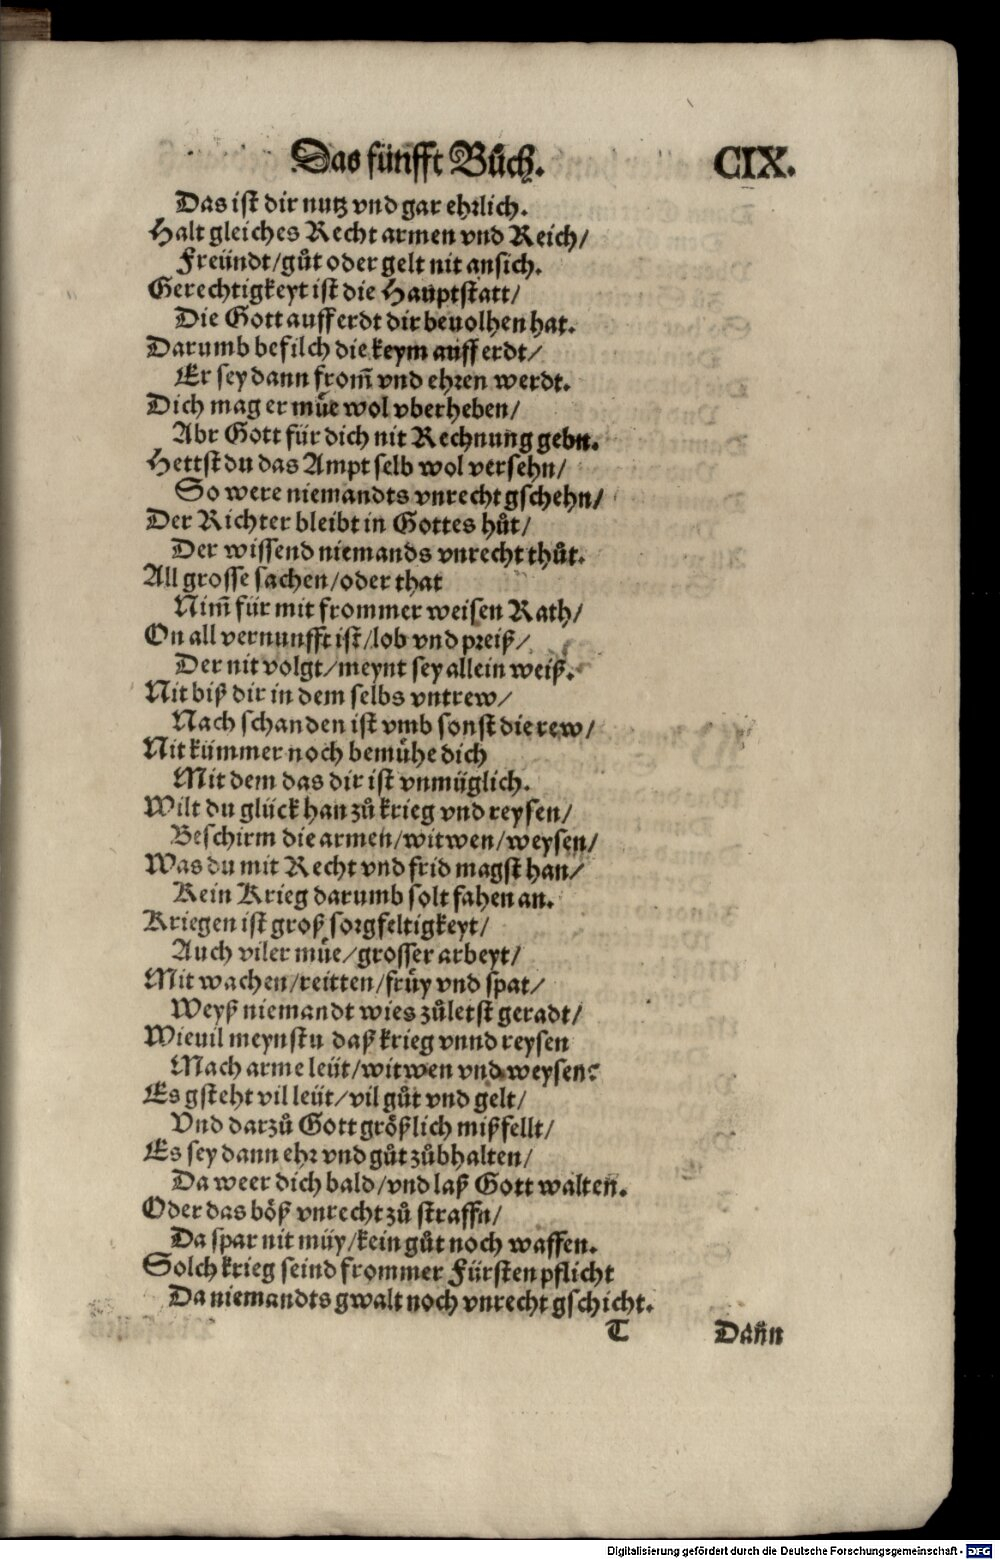 Das fünfft Bůch. CIX.
Das ist dir nutz vnd gar ehrlich.
Halt gleiches Recht armen vnd Reich/
Freündt/gůt oder gelt nit ansich.
Gerechtigkeyt ist die Hauptstatt/
Die Gott auff erdt dir beuolhen hat.
Darumb befilch die keym auff erdt/
Er sey dann from̃ vnd ehren werdt.
Dich mag er můe wol vberheben/
Abr Gott für dich nit Rechnung gebn.
Hettst du das Ampt selb wol versehn/
So were niemandts vnrecht gschehn/
Der Richter bleibt in Gottes hůt/
Der wissend niemands vnrecht thůt.
All grosse sachen/oder that
Nim̃ für mit frommer weisen Rath/
On all vernunfft ist/lob vnd preiß/
Der nit volgt/meynt sey allein weiß.
Nit biß dir in dem selbs vntrew/
Nach schanden ist vmb sonst die rew/
Nit kümmer noch bemůhe dich
Mit dem das dir ist vnmüglich.
Wilt du glück han zů krieg vnd reysen/
Beschirm die armen/witwen/weysen/
Was du mit Recht vnd frid magst han/
Kein Krieg darumb solt fahen an.
Kriegen ist groß sorgfeltigkeyt/
Auch viler můe/grosser arbeyt/
Mit wachen/reitten/frůy vnd spat/
Weyß niemandt wies zůletst geradt/
Wieuil meynstu daß krieg vnnd reysen
Mach arme leüt/witwen vnd weysen?
Es gsteht vil leüt/vil gůt vnd gelt/
Vnd darzů Gott größlich mißfellt/
Es sey dann ehr vnd gůt zůbhalten/
Da weer dich bald/vnd laß Gott walten.
Oder das böß vnrecht zů straffn/
Da spar nit müy/kein gůt noch waffen.
Solch krieg seind frommer Fürsten pflicht
Da niemandts gwalt noch vnrecht gschicht.
T Dañn
Digitalisierung gefördert durch die Deutsche Forschungsgemeinschaft - DFG